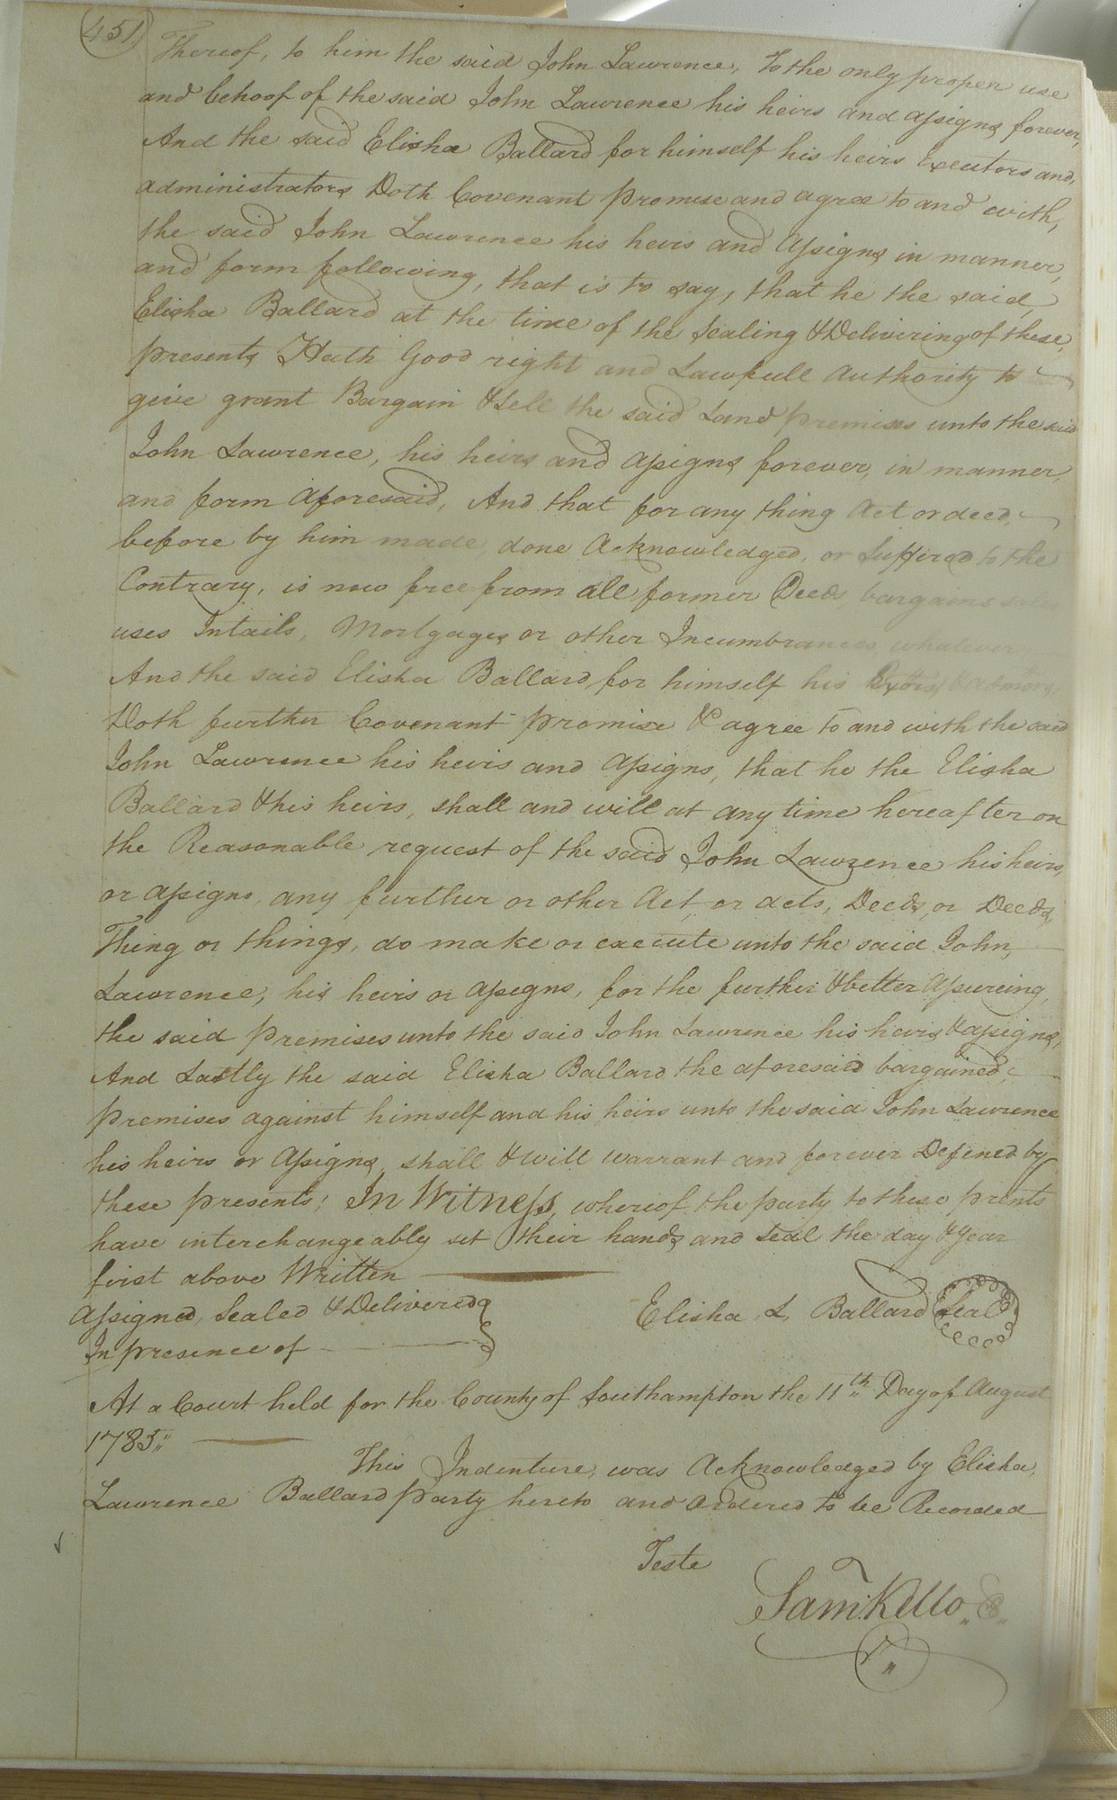 451
Thereof, to him the said John Lawrence, To the only proper use
and behoof of the said John Lawrence his heirs and assigns forever,
And the said Elisha Ballard for himself his heirs Executors and,
administrators Doth Covenant promise and agree to and with,
the said John Lawrence his heirs and assigns in manner,
and form following, that is to say, that he the said,
Elisha Ballard at the time of the Sealing & Delivering of these,
presents Hath Good right and Lawfull Authority to
give grant Bargain & Sell the said Land premises unto the said
John Lawrence, his heirs and assigns forever, in manner,
and form aforesaid, And that for any thing Act or deed,
before by him made, done Acknowledged, or Suffered to the
Contrary, is now free from all former Deeds bargains sales
uses Intails, Mortgages or other Incumbrances whatever
And the said Elisha Ballard, for himself his Exors
Doth further Covenant promise & agree to and with the said
John Lawrence his heirs and assigns, that he the Elisha
Ballard & his heirs, shall and will at any time hereafter on
the Reasonable request of the said John Lawrence his heirs,
or assigns, any further or other Act or acts, Deeds, or Deeds,
Thing or things, do make or execute unto the said John,
Lawrence, his heirs or assigns, for the further & better Assureing,
the said premises unto the said John Lawrence his heirs & assigns,
And Lastly the said Elisha Ballard the aforesaid bargained,
premises against himself and his heirs unto the said John Lawrence
his heirs or assigns, shall & will warrant and forever Defined by
these presents; In Witness, whereof the party to these prsents
have interchangeably set their hands and seal the day & year
first above Written
Assigned, Sealed & Delivered
In presence of
Elisha L Ballard Seal
At a Court held for the County of Southampton the 11th Day of August
1785
This Indenture, was Acknowledged by Elisha,
Lawrence Ballard party hereto and ordered to be Recorded
Teste
Saml. Kello